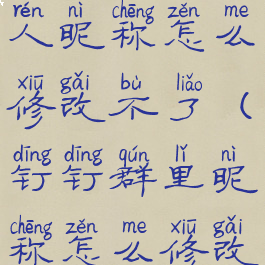 rén nì chēng zěn me
人昵称怎么
xiū gǎi bù liǎo
修改不了(
dīng dīng qún lǐ nì
钉钉群里昵
chēng zěn me xiū gǎi
称怎么修改